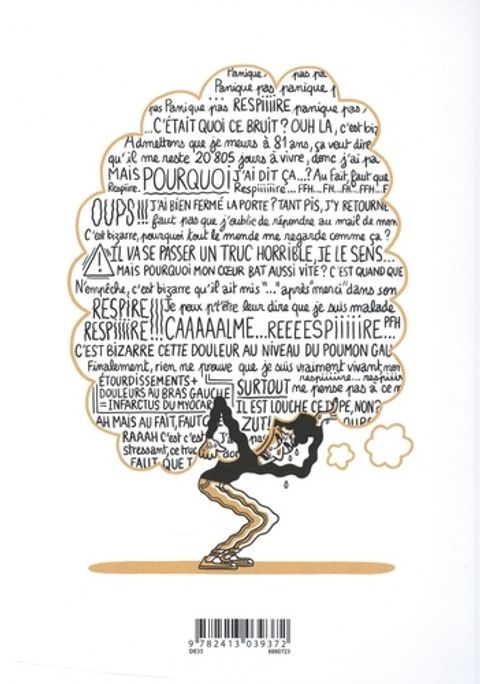 Panique, pas pa
Panique pas, panique p
pas Panique pas RESPIIIIRE panique pas,
...C'ÉTAIT QUOI CE BRUIT? OUH LA, c'est biz
Admettons que je meurs à 81 ans, ça veut dire
qu'il me reste 20 805 jours à vivre, donc j'ai pa
MAIS POURQUOI J'AI DIT ÇA...? Au fait, faut que
Respiire. Respiiiiiire... FFH... FH... FH... FFH... F
OUPS!!! J'AI BIEN FERMÉ LA PORTE? TANT PIS, J'Y RETOURNE
faut pas que j'oublie de répondre au mail de mon
C'est bizarre, pourquoi tout le monde me regarde comme ça?
! IL VA SE PASSER UN TRUC HORRIBLE, JE LE SENS...
...MAIS POURQUOI MON CŒUR BAT AUSSI VITE? C'EST QUAND QUE
N'empêche, c'est bizarre qu'il ait mis "..." après "merci" dans son
RESPIRE!!! Je peux p't'être leur dire que je suis malade
RESPIIIIRE!!! CAAAAALME...REEEESPIIIIIRE... PFH
C'EST BIZARRE CETTE DOULEUR AU NIVEAU DU POUMON GAU
Finalement, rien me prouve que je suis vraiment vivant, non
respiiiiire... respiiiir
ÉTOURDISSEMENTS +
DOULEURS AU BRAS GAUCHE
= INFARCTUS DU MYOCAR
SURTOUT me pense pas à ce m
IL EST LOUCHE CE PE, NON?
AH MAIS AU FAIT, FAUT QUE
ZUT!
OUPS
RAAAH C'est c'est J'ai pas
stressant, ce truc don
FAUT QUE T
9 782413 039372
DE35 8880725